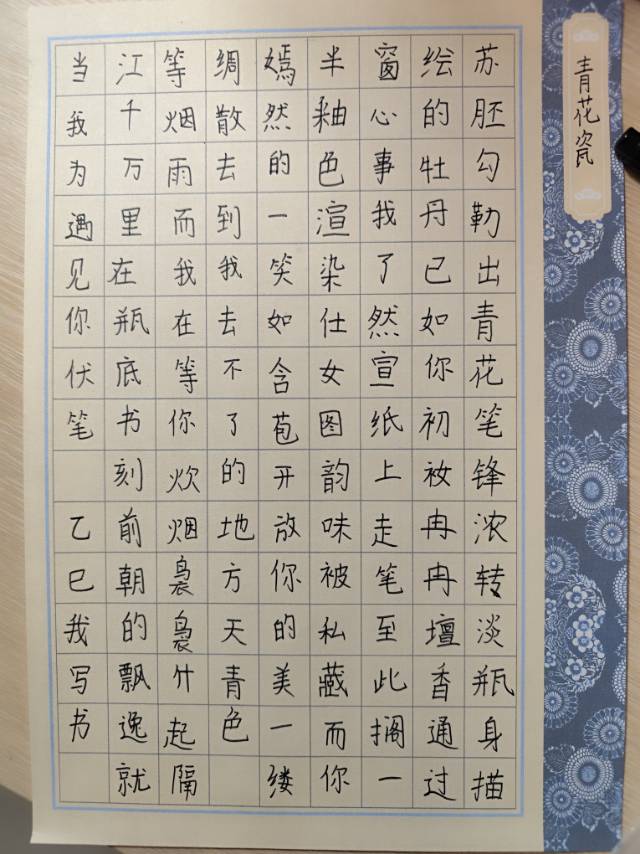 青花瓷
苏胚勾勒出青花笔锋浓转淡瓶身描
绘的牡丹已如你初妆冉冉壇香通过
窗心事我了然宣纸上走笔至此搁一
半釉色渲染仕女图韵味被私藏而你
嫣然的一笑如含苞开放你的美一缕
绸散去到我去不了的地方天青色
等烟雨而我在等你炊烟袅袅升起隔
江千万里在瓶底书刻前朝的飘逸就
当我为遇见你伏笔 乙巳我写书